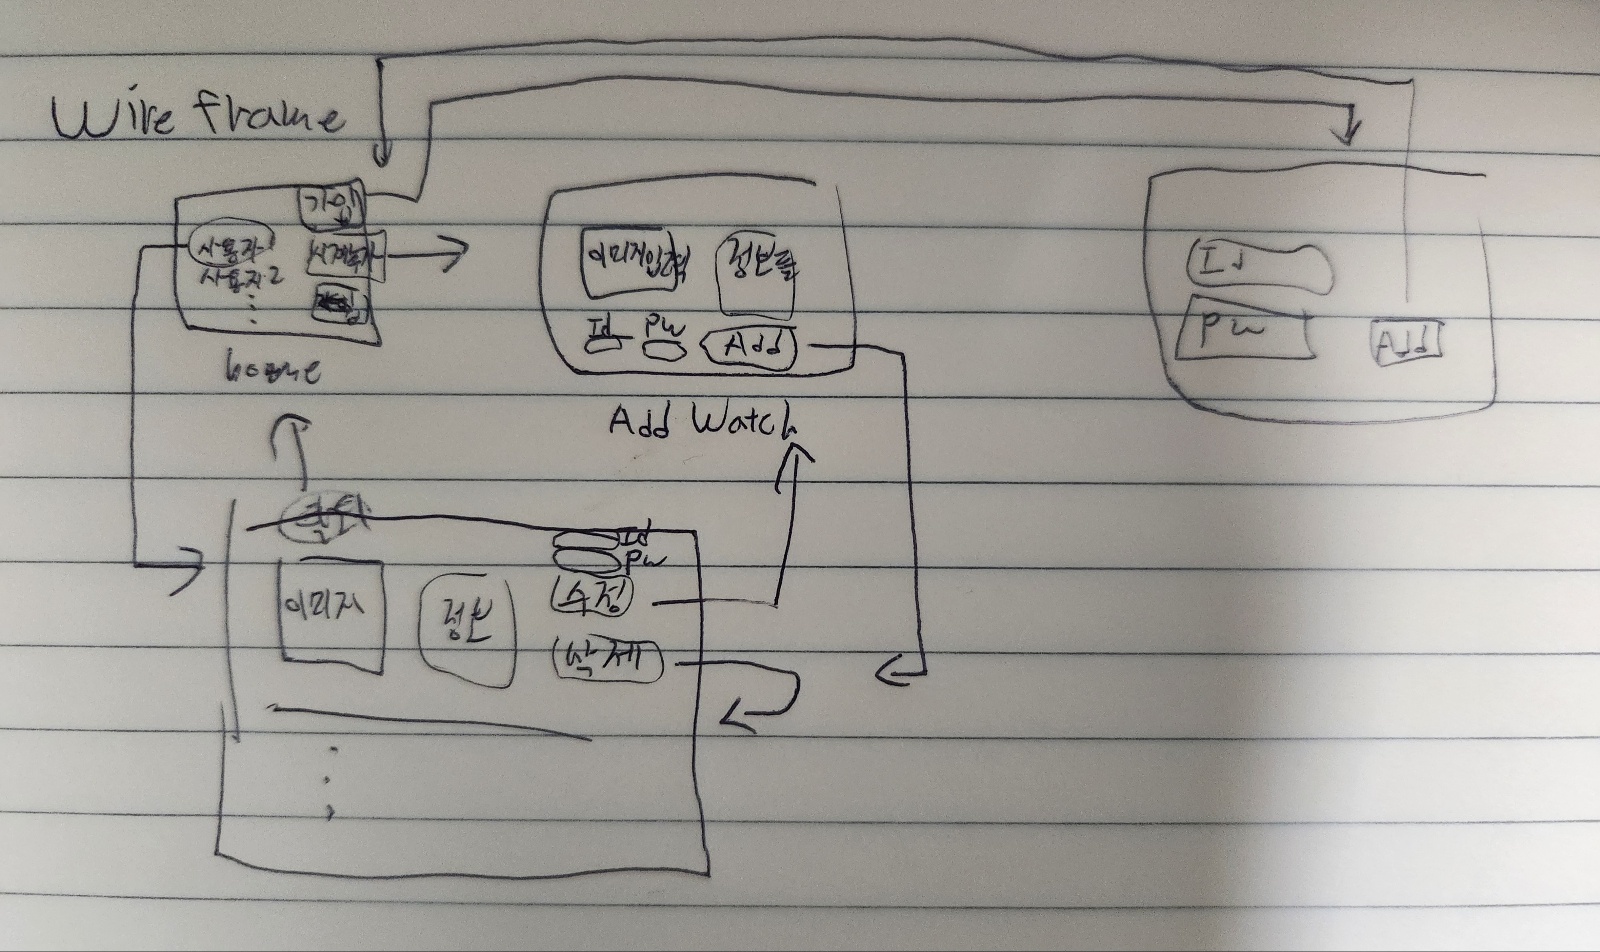 Wire frame
가입
사용자1
시계추가
사용자2
home
이미지입력
정보들
Id
PW
Add
Add Watch
Id
PW
Add
Id
PW
이미지
정보
수정
삭제